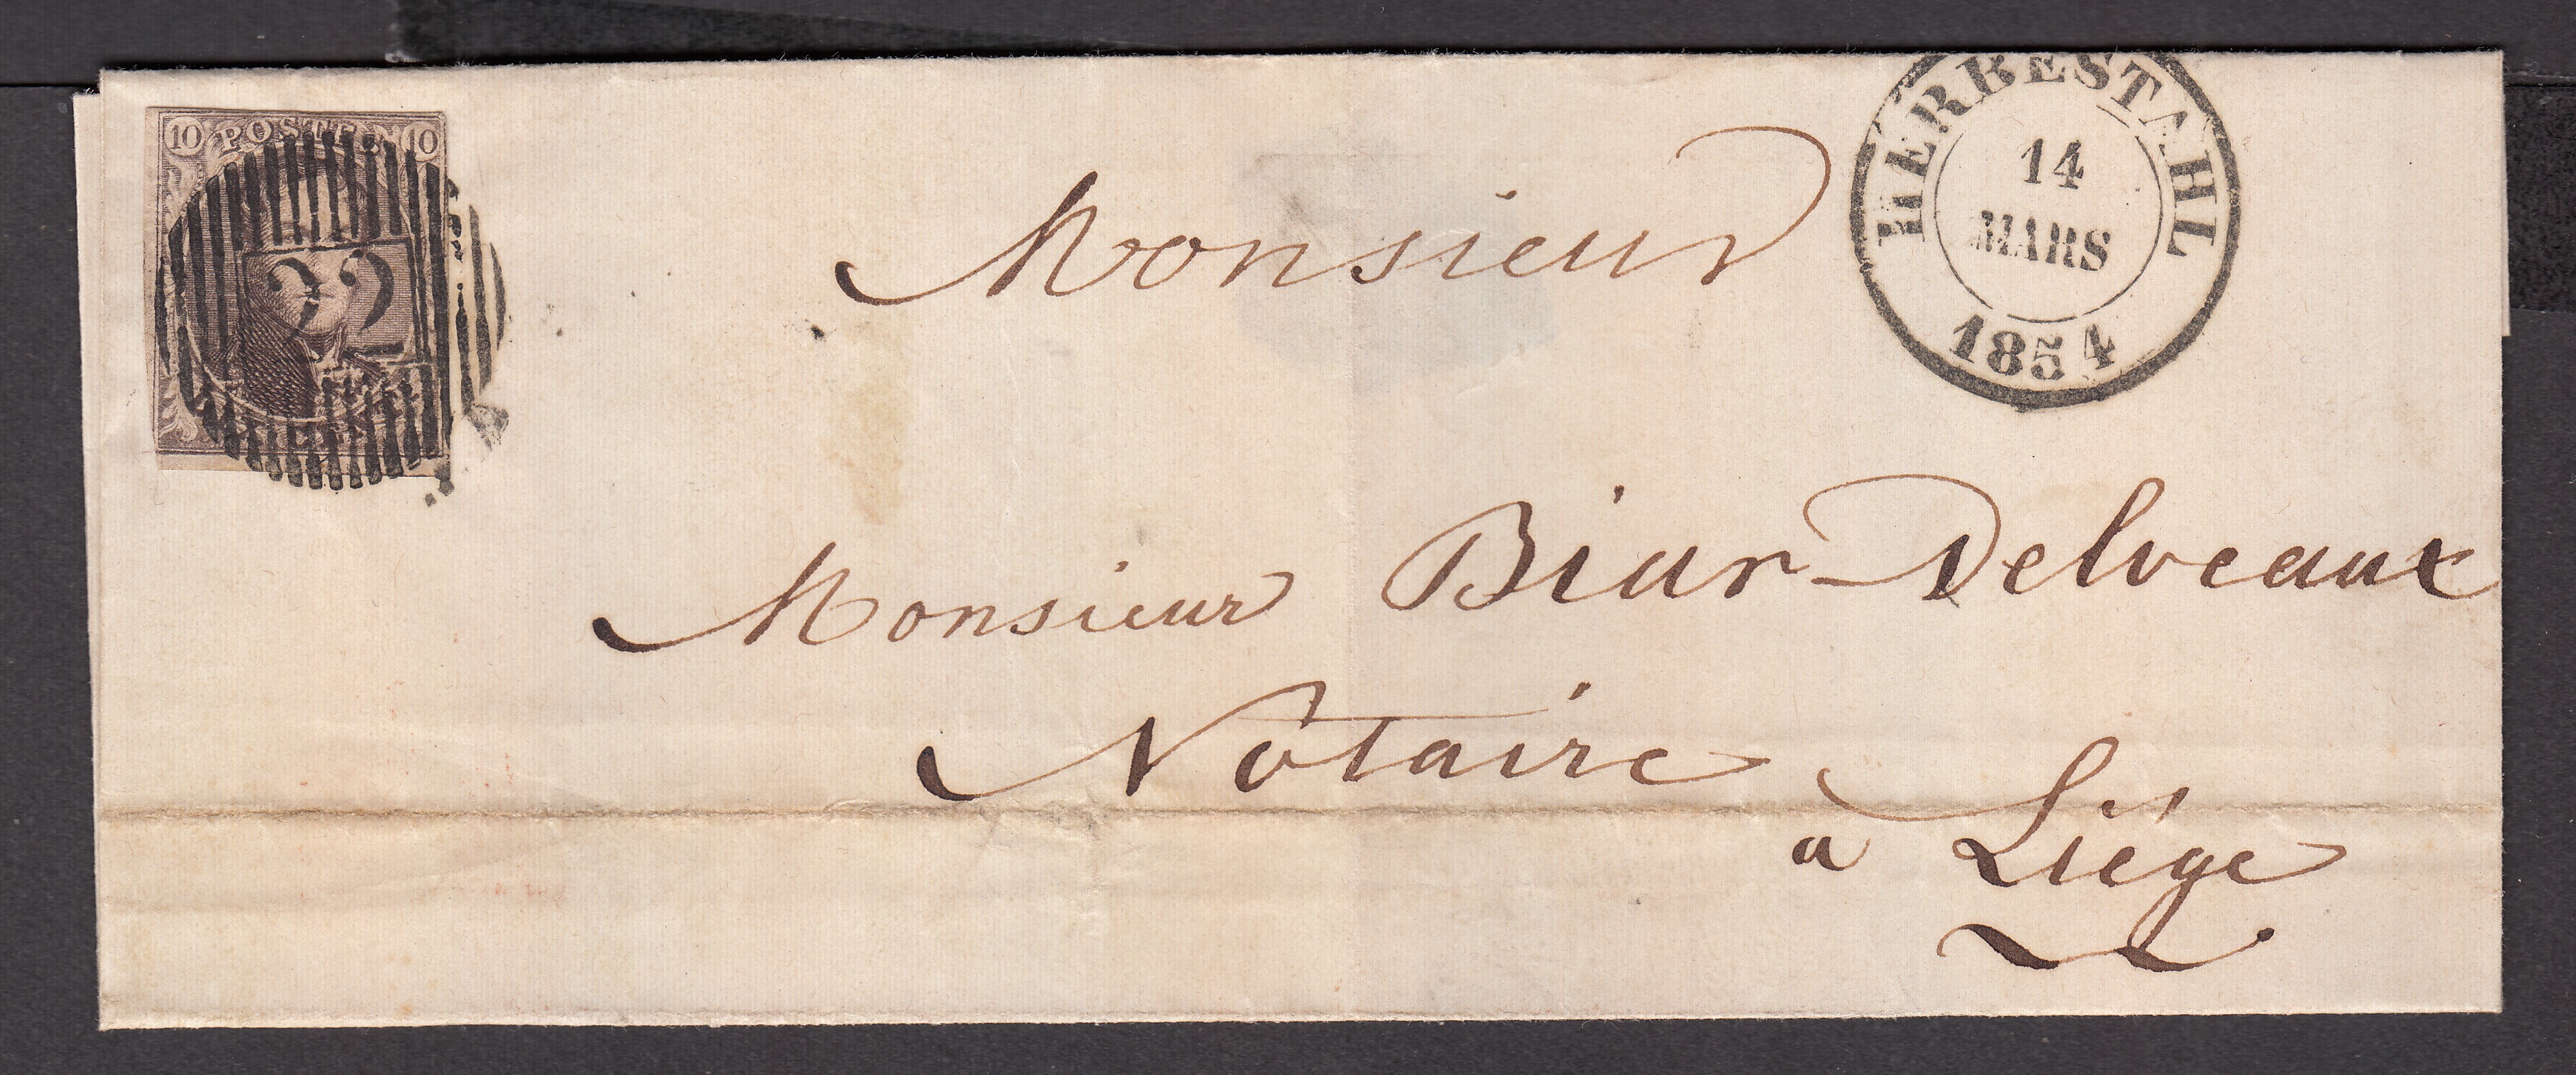 10 POSTES 10
22
HERBESTAHL
14
MARS
1854
Monsieur
Monsieur Biar-Delveaux
Notaire
a Liége